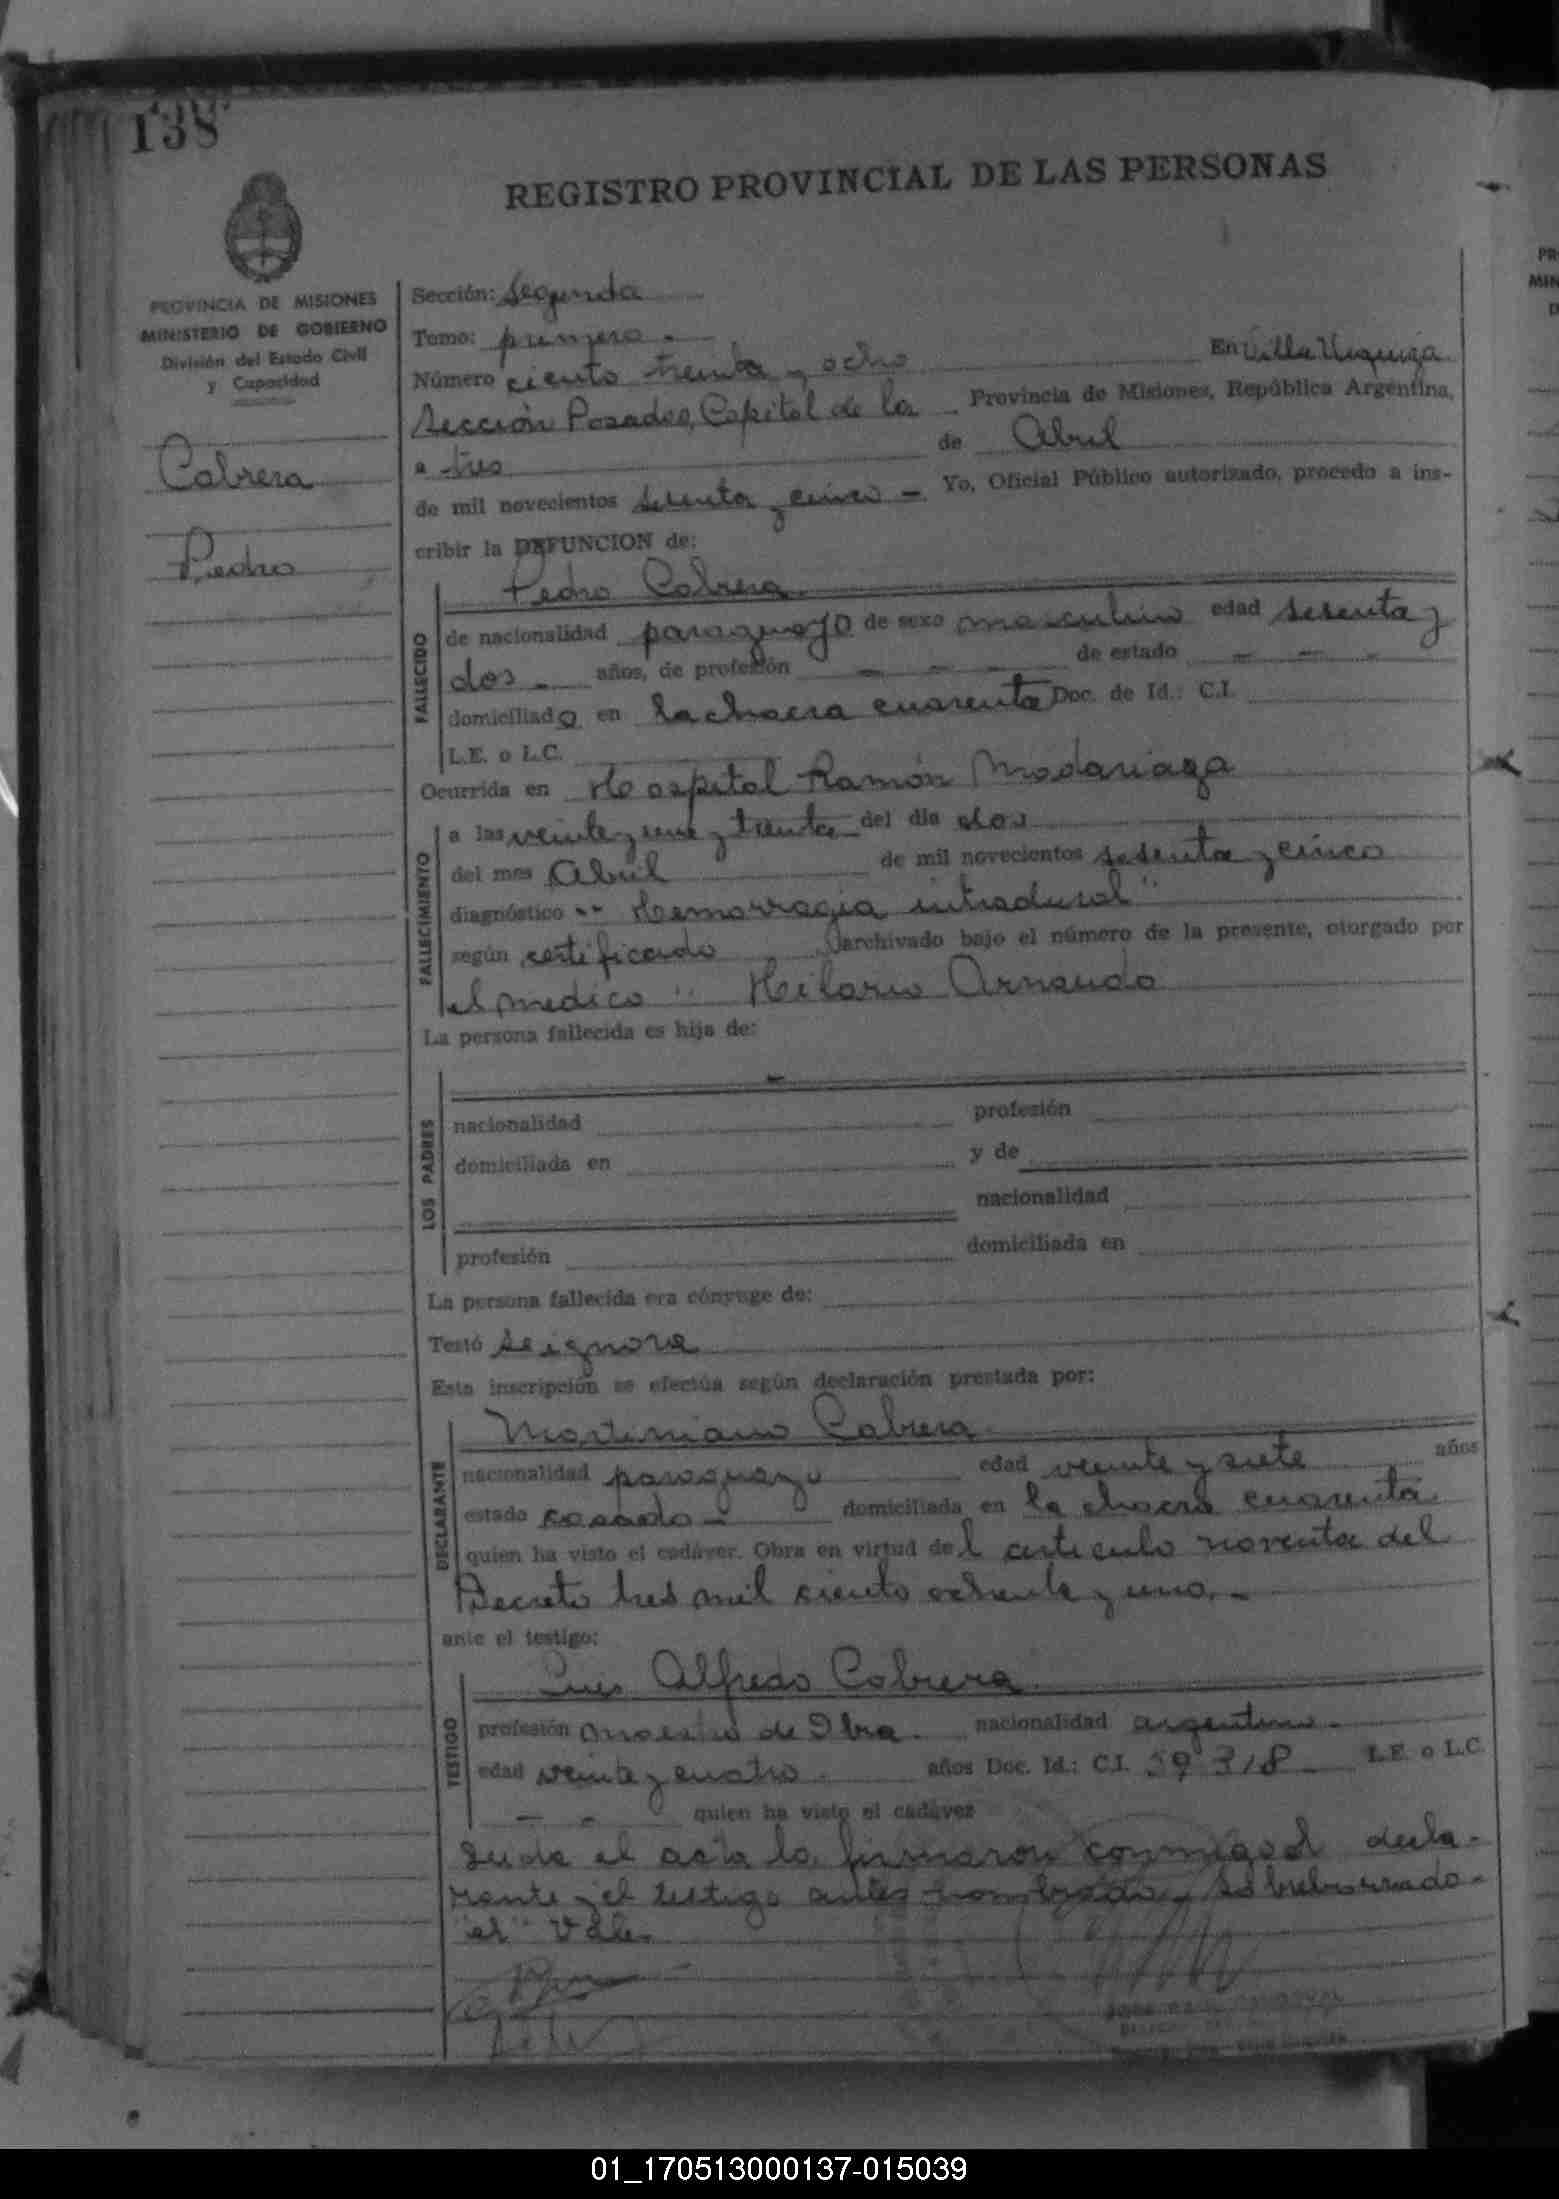 138
REGISTRO PROVINCIAL DE LAS PERSONAS
PROVINCIA DE MISIONES
MINISTERIO DE GOBIERNO
División del Estado Civil
y Capacidad
Cabrera
Pedro
Sección: Segunda
Tomo: primero.-
Número ciento treinta y ocho En Villa Urquiza
Sección Posadas, Capital de la - Provincia de Misiones, República Argentina,
a tres de Abril
de mil novecientos sesenta y cinco - Yo, Oficial Público autorizado, procedo a ins-
cribir la DEFUNCION de:
Pedro Cabrera
FALLECIDO
de nacionalidad paraguayo de sexo masculino edad sesenta y
dos - años, de profesión - - - de estado - - -
domiciliado en la chacra cuarenta Doc. de Id.: C.I.
L.E. o L.C.
Ocurrida en Hospital Ramón Madariaga
FALLECIMIENTO
a las veinte y una y treinta del día dos
del mes Abril de mil novecientos sesenta y cinco
diagnóstico "Hemorragia intradural"
según certificado archivado bajo el número de la presente, otorgado por
el medico " Hilario Arnaudo
La persona fallecida es hija de:
-
LOS PADRES
nacionalidad profesión
domiciliada en y de
nacionalidad
profesión domiciliada en
La persona fallecida era cónyuge de:
Testó se ignora
Esta inscripción se efectúa según declaración prestada por:
Martiniano Cabrera
DECLARANTE
nacionalidad paraguayo edad veinte y siete años
estado casado - domiciliada en la chacra cuarenta
quien ha visto el cadáver. Obra en virtud del articulo noventa del
Decreto tres mil ciento ochenta y uno.-
ante el testigo:
Luis Alfredo Cabrera
TESTIGO
profesión maestro de Obra. nacionalidad argentino.
edad veinte y cuatro años Doc. Id.: C.I. 59 318 L.E. o L.C.
- - quien ha visto el cadáver
Leida el acta la firmaron conmigo el decla-
rante y el testigo antes nombrado. Sobreborrado-
"el" Vale.
01_170513000137-015039